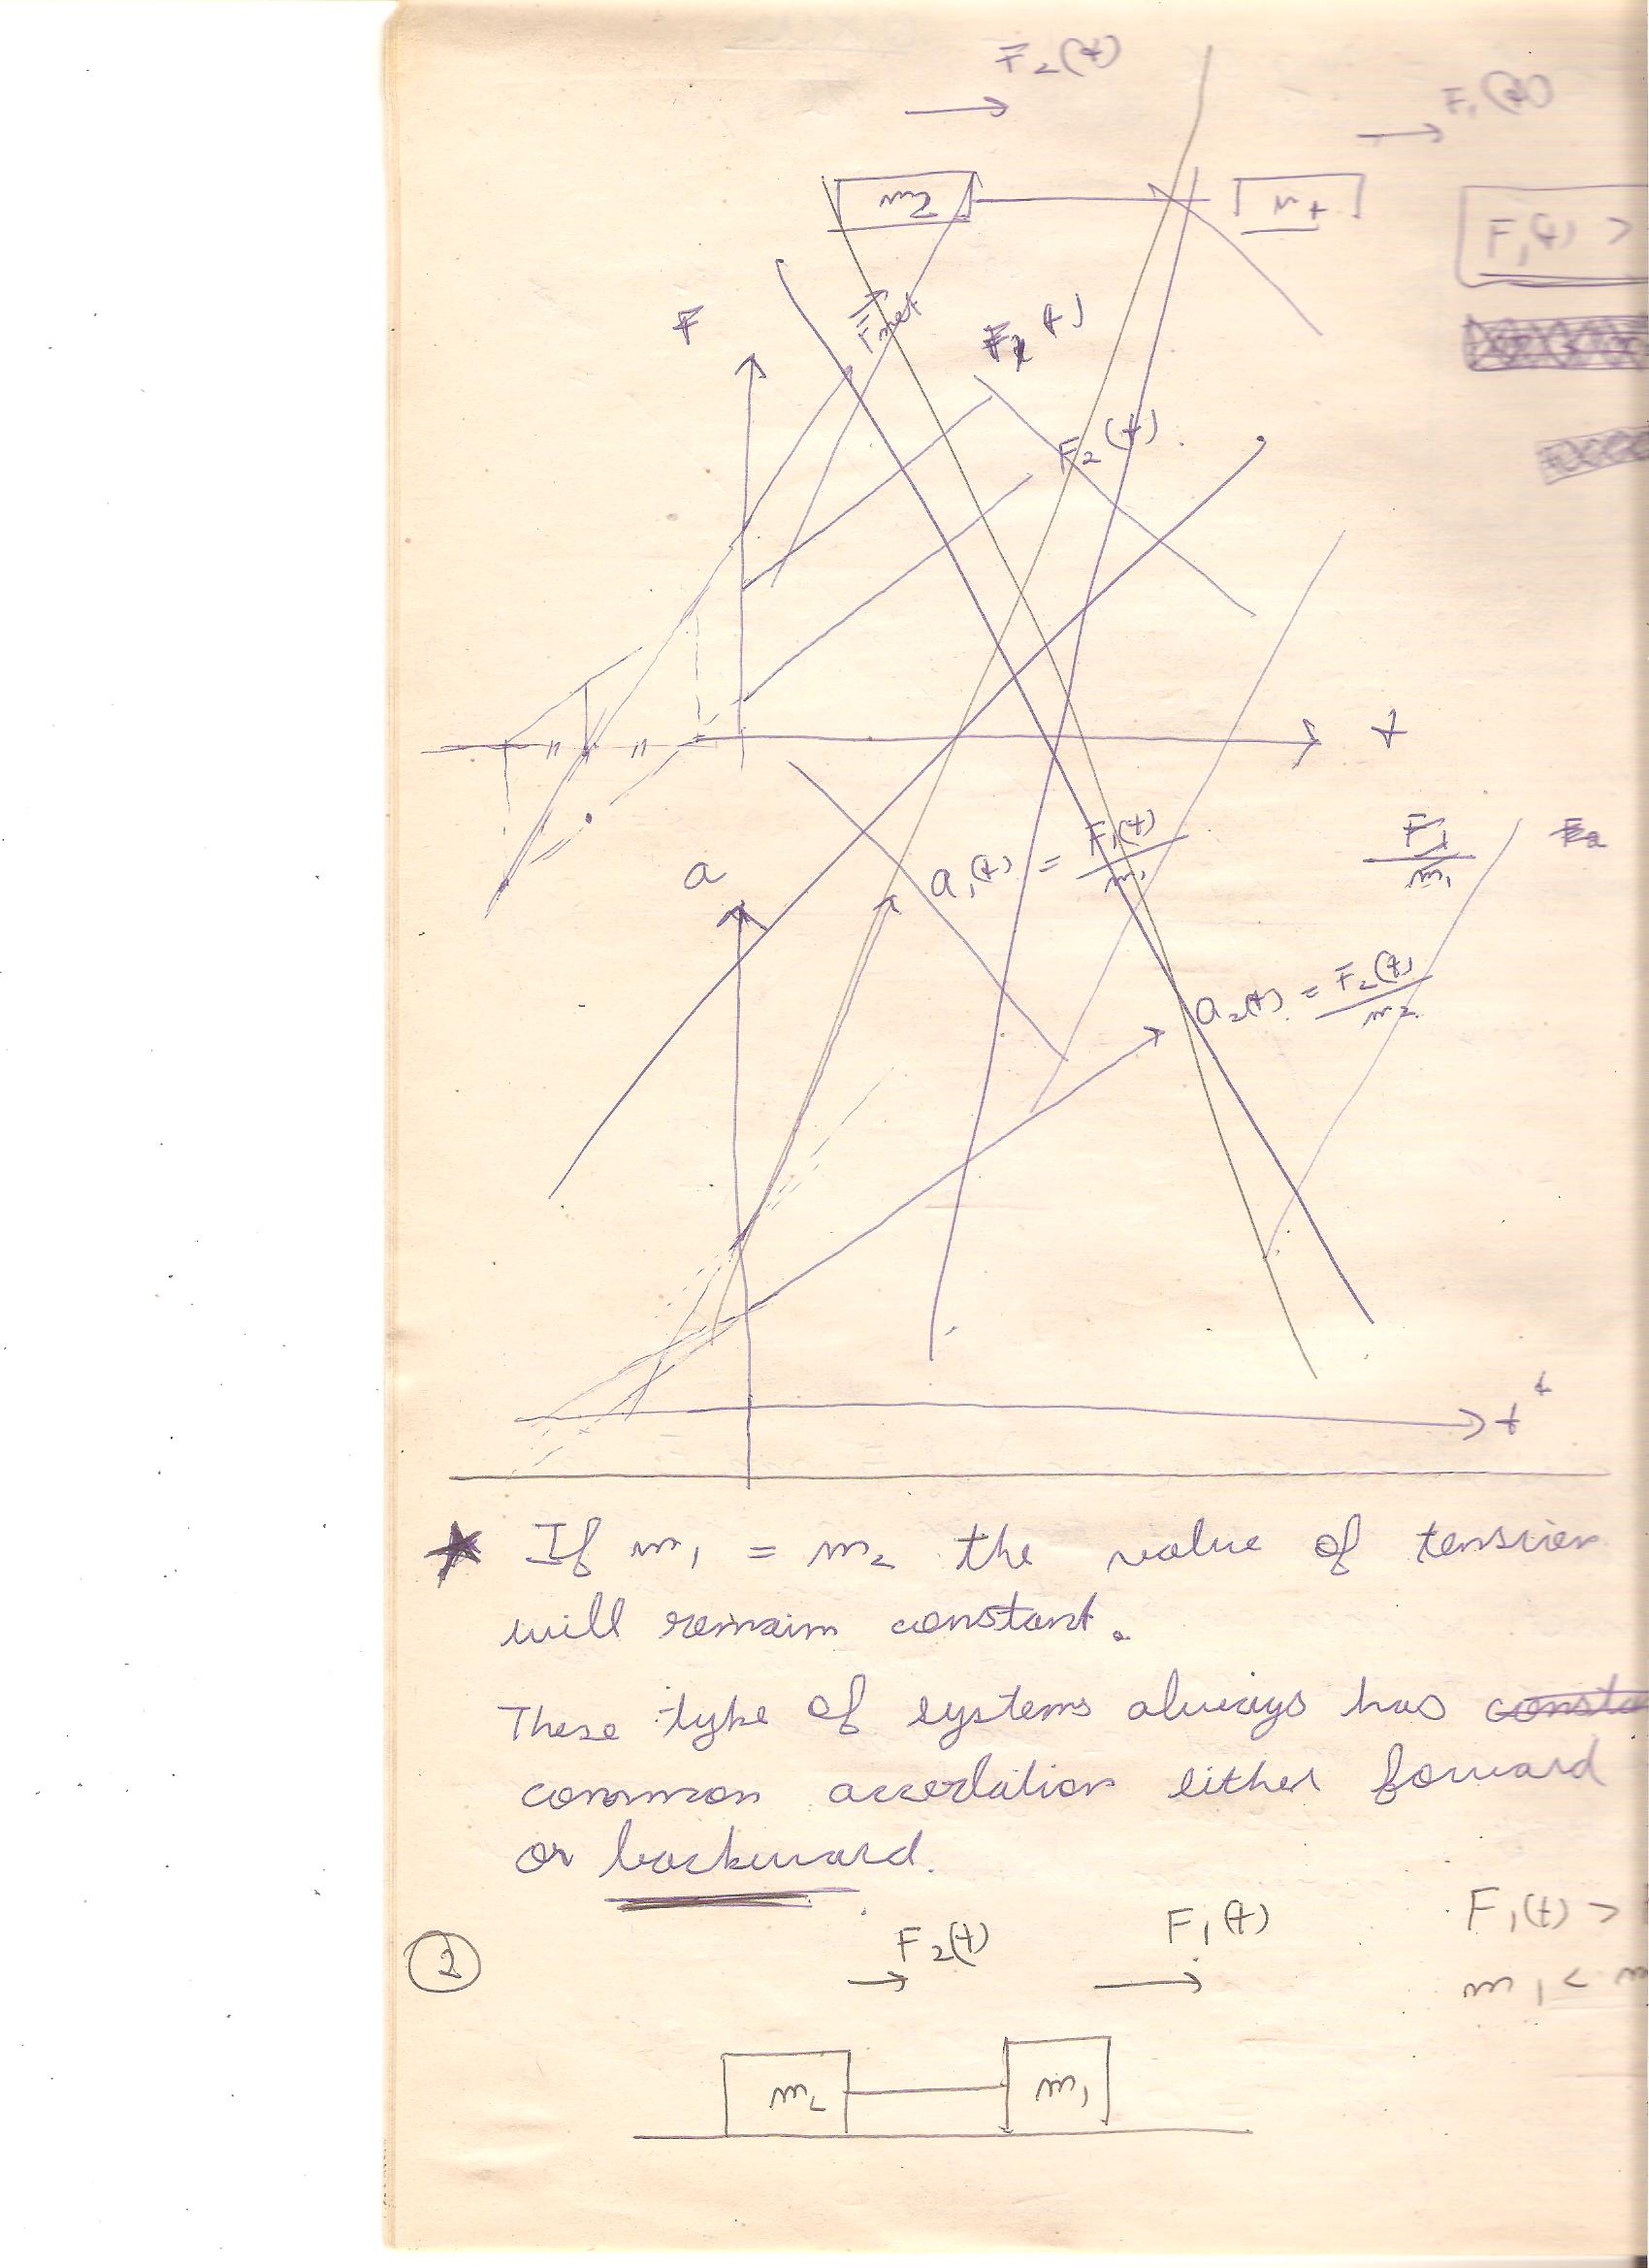 F₂(t)
F₁(t)
m2
F₁(t) >
F
F⃗net
F₁(t)
F₂(t).
t
a
a₁(t) = F₁(t)/m₁
F₁/m₁
a₂(t) = F₂(t)/m₂
t
t
★ If m₁ = m₂ the value of tension
will remain constant.
These type of systems always has
common accerlation either forward
or backward.
F₂(t) F₁(t) F₁(t) >
m₁ <
m₂ m₁